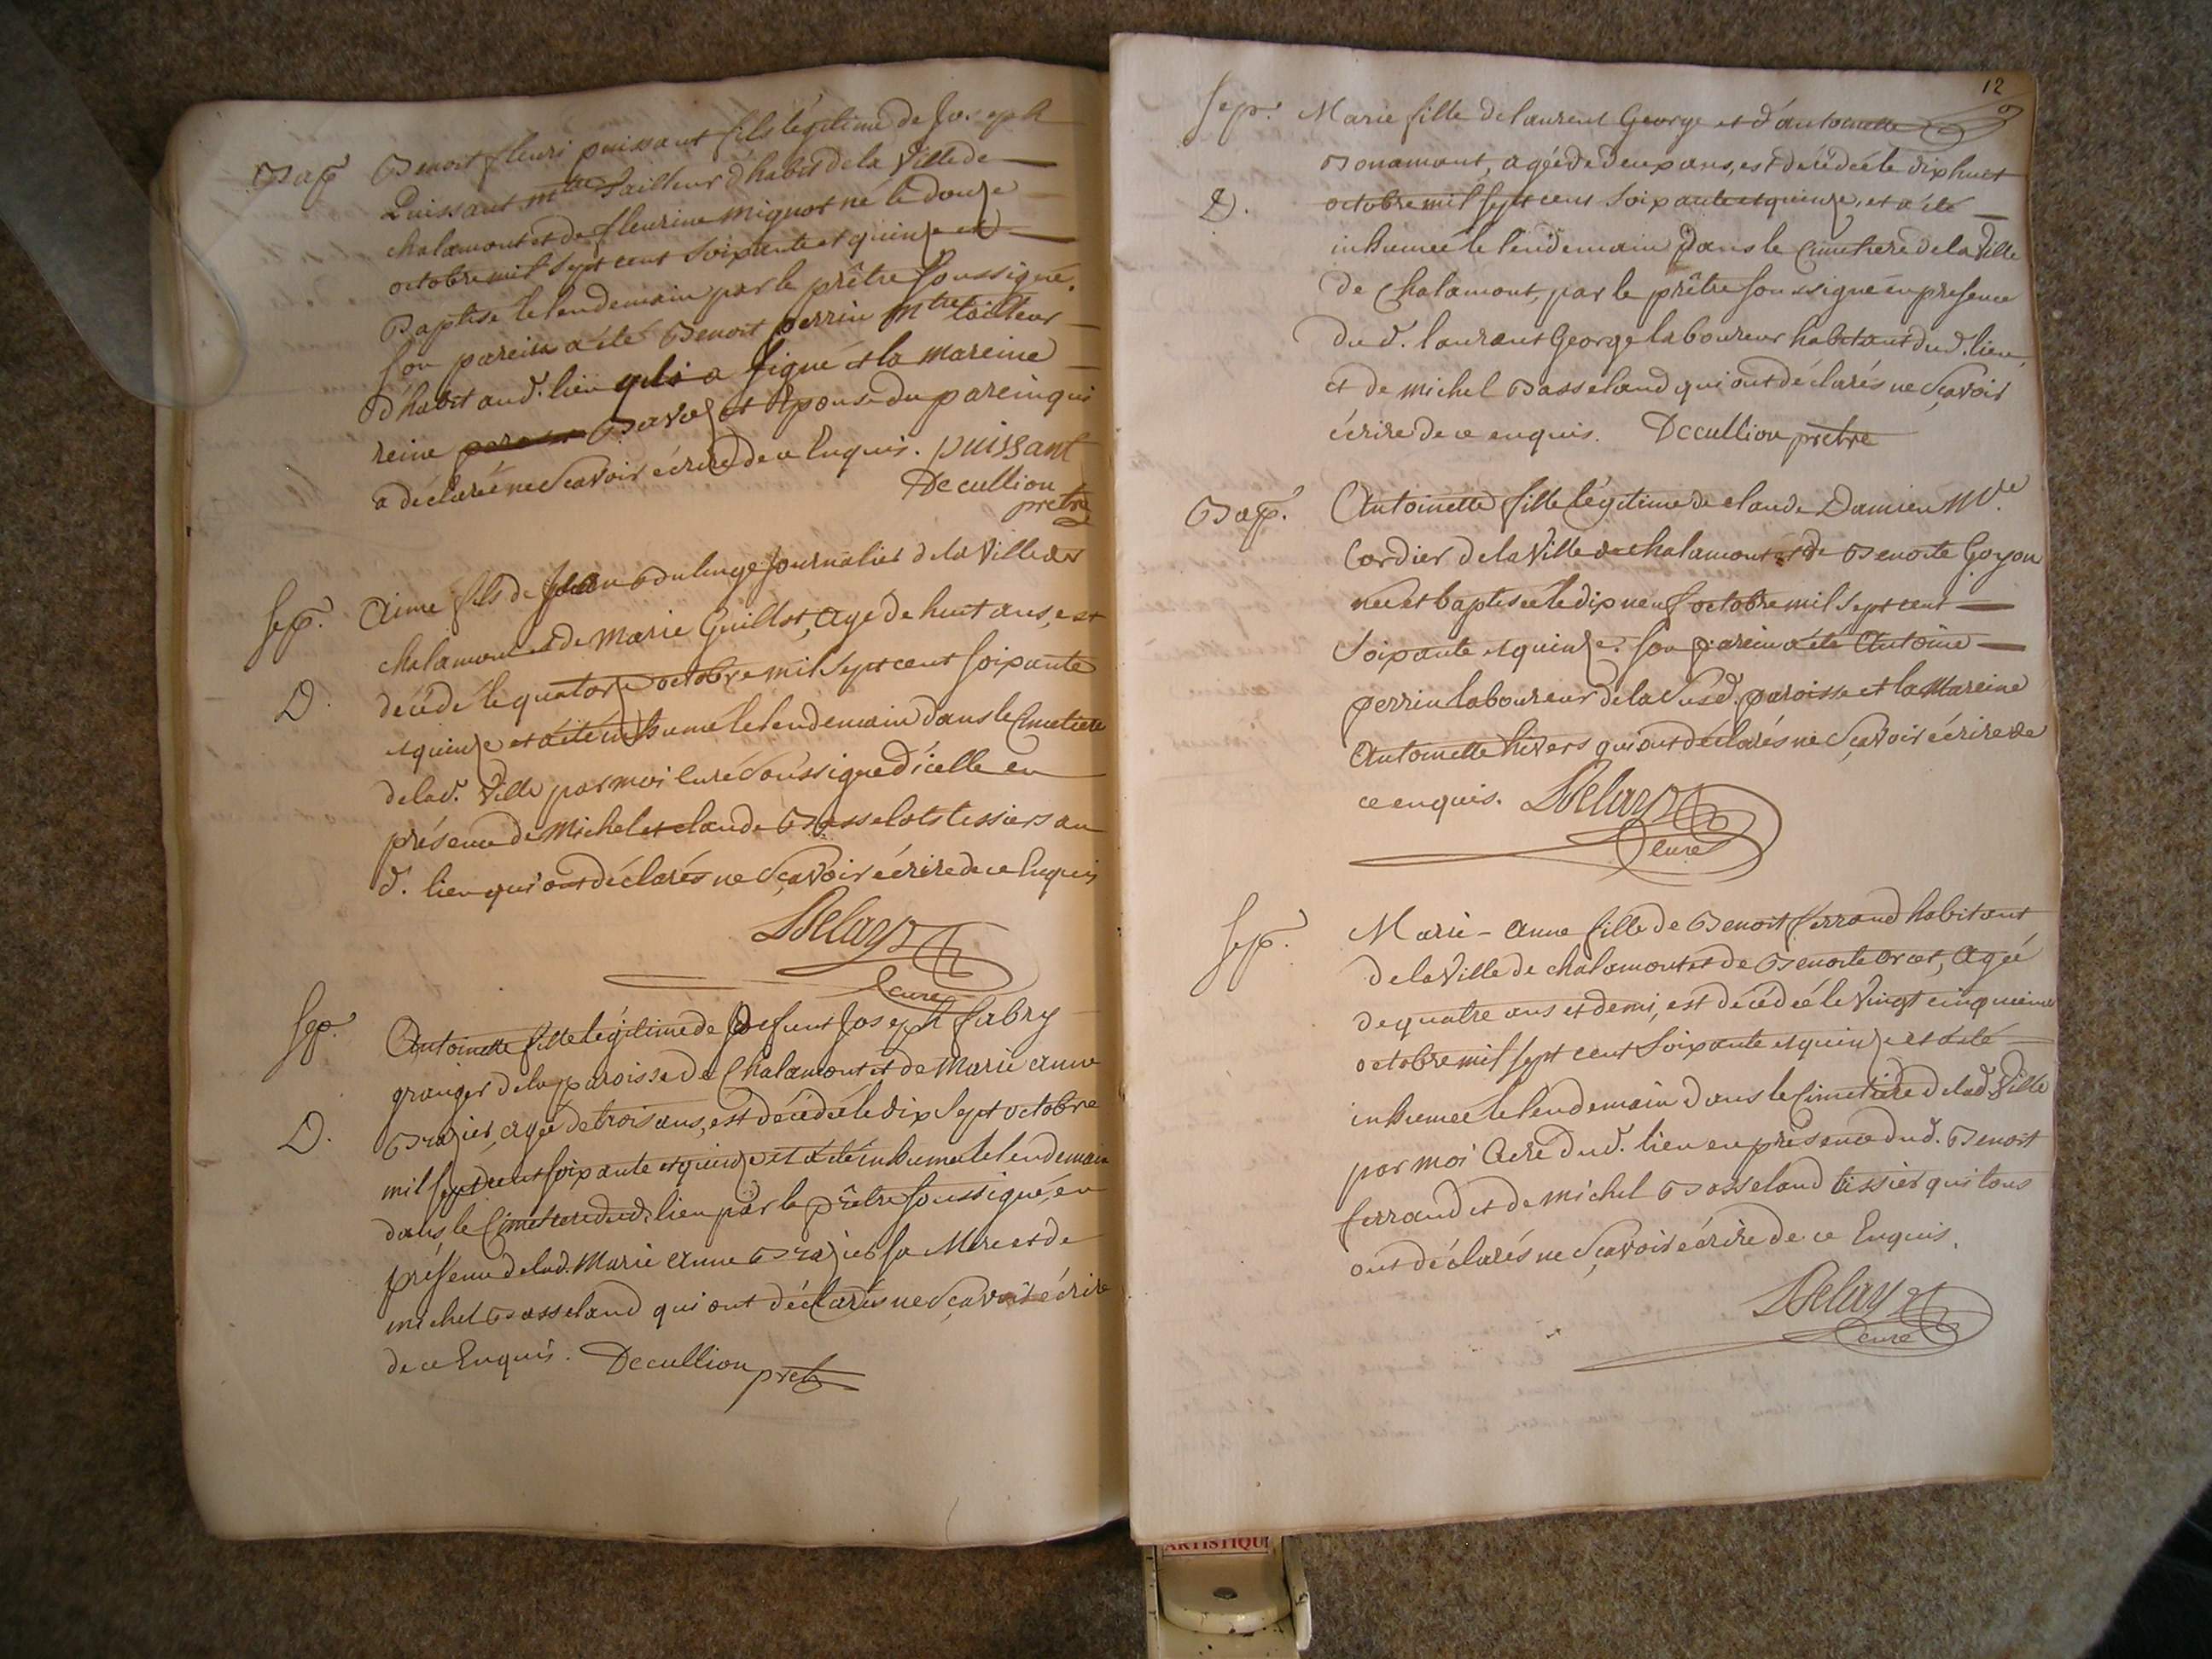 Bap.
Benoit fleuri puissant fils légitime de Joseph
Puissant mtre Tailleur d'habit de la Ville de
chalamont et de fleurine mignot né le douze
octobre mil sept cent soixante et quinze et
Baptisé le lendemain par le prêtre soussigné.
son parein a été Benoit perrin mtre tailleur
d'habit aud. lieu qui a signé et la mareine
reine Bavoz et Epouse du parein qui
a déclaré ne Scavoir écrire de ce Enquis. puissant
Decullion
pretre
Sep.
D.
Aimé fils de Jean Boulinge Journalier de la Ville de
chalamont et de Marie Guillot, Agé de huit ans, est
décédé le quatorze octobre mil Sept cent soixante
et quinze et a été inhumé le lendemain dans le Cimetiere
de lad. Ville par moi Curé Soussigné d'icelle en
présence de Michel et claude Basselots tessiers au
d. lieu qui ont déclarés ne Sçavoir écrire de ce Enquis
Delay
Curé
Sep.
D.
Antoinette fille légitime de Defunt Joseph fabry
granger de la paroisse de Chalamont et de Marie anne
Brazier, agée de trois ans, est décédée le dix Sept octobre
mil sept cent soixante et quinze et a été inhumée le lendemain
dans le Cimetiere dud. lieu par le prêtre soussigné, en
présence de lad. Marie Anne Brazier sa Mere et de
michel Basseland qui ont déclarés ne Scavoir écrire
de ce Enquis. Decullion pretre
12
Sep.
D.
Marie fille de laurent George et d'antoinette
Bonamant, agée de deux ans, est décédée le dix huit
octobre mil sept cent soixante et quinze, et a été
inhumée le lendemain Dans le Cimetiere de la Ville
de Chalamont, par le prêtre soussigné en presence
du d. laurant George laboureur habitant dud. lieu
et de michel Basseland qui ont déclarés ne Scavoir
écrire de ce enquis. Decullion pretre
Bap.
Antoinette fille légitime de claude Damien Md.
Cordier de la Ville de chalamont et de Benoite Goyon
née et baptisée le dix neuf octobre mil Sept cent
Soixante et quinze. Son parein a été Antoine
perrin laboureur de la Susd. paroisse et la Mareine
Antoinette hivers qui ont déclarés ne Sçavoir écrire de
ce enquis. Delay
Curé
Sep.
Marie-Anne fille de Benoit ferrand habitant
de la Ville de chalamont et de Benoite orcet, Agée
de quatre ans et demi, est décédée le Vingt cinquieme
octobre mil sept cent Soixante et quinze et a été
inhumée le lendemain dans le Cimetiere de lad Ville
par moi Curé dud. lieu en présence dud. Benoit
ferrand et de michel Basseland tissier qui tous
ont déclarés ne Sçavoir écrire de ce Enquis.
Delay
Curé
ARTISTIQU